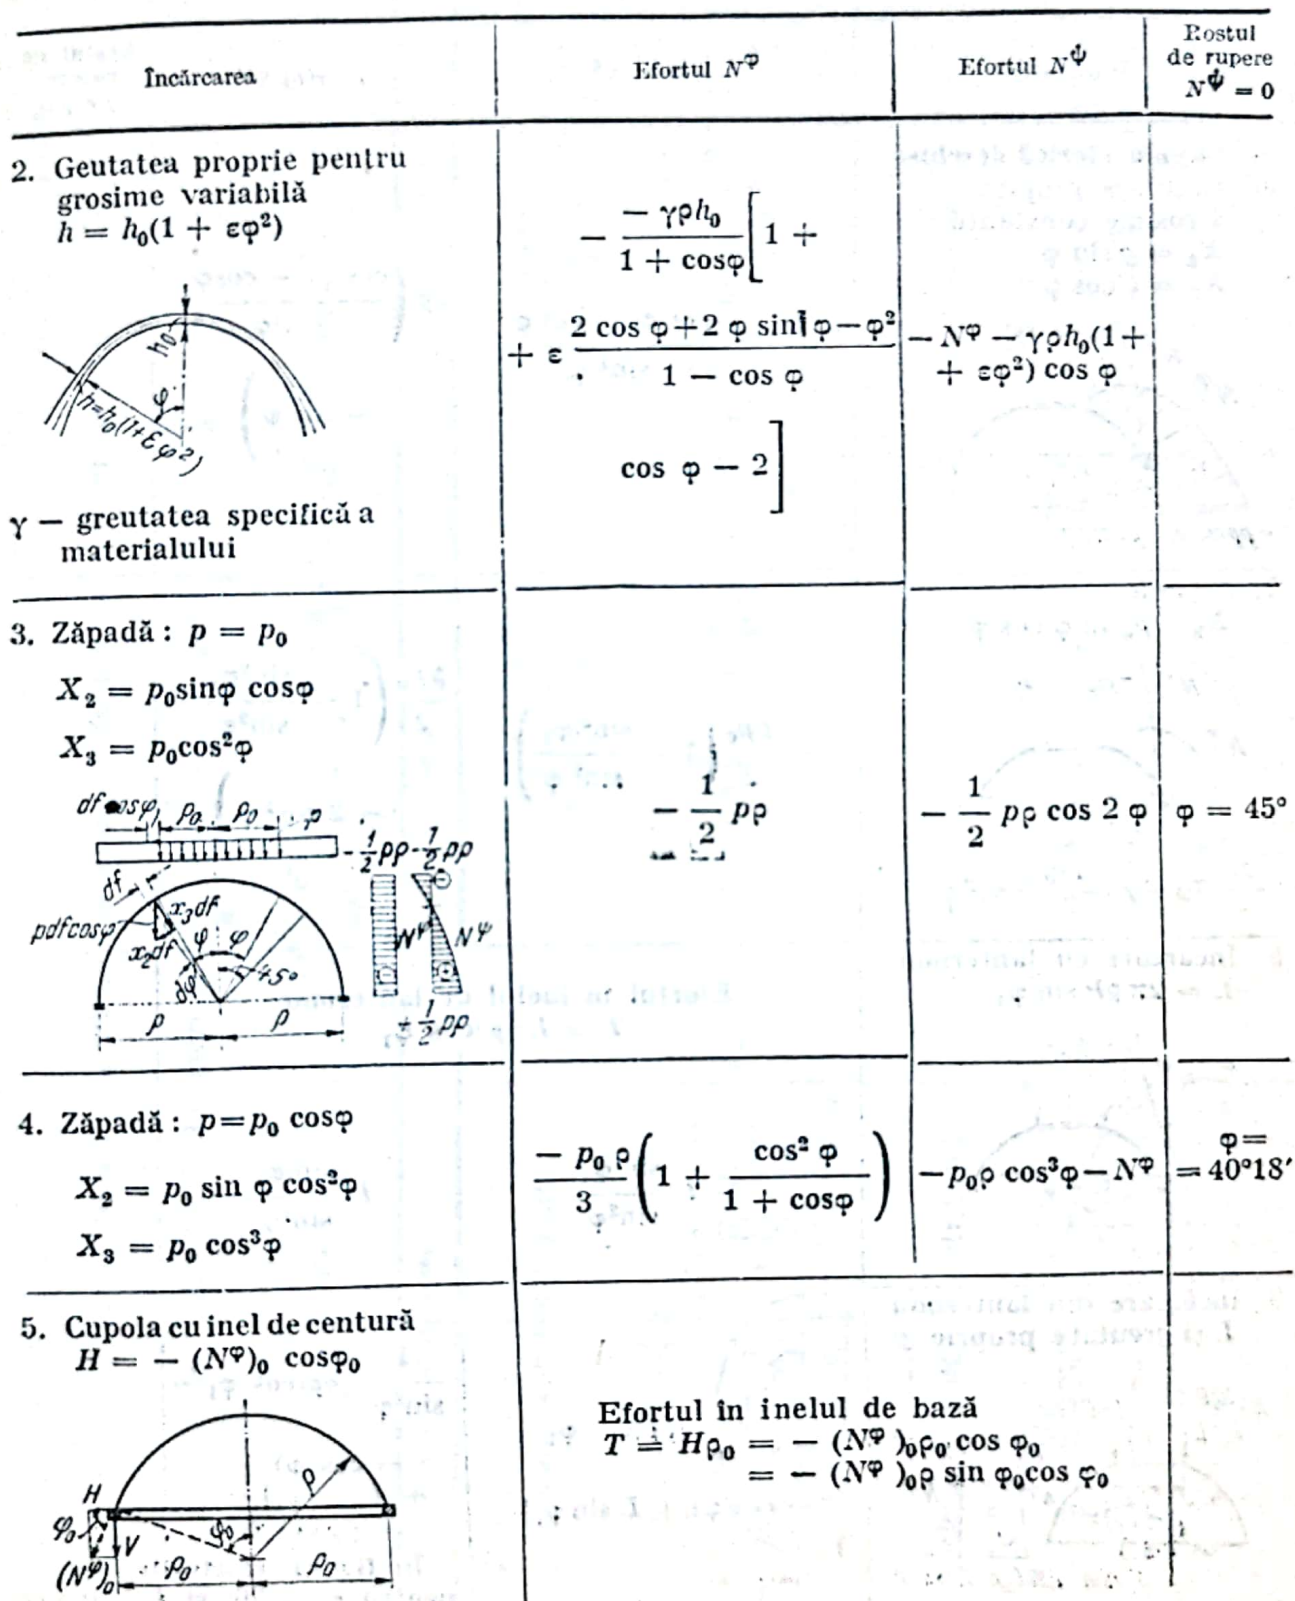 Încărcarea
Efortul N^φ
Efortul N^ψ
Rostul
de rupere
N^ψ = 0
2. Geutatea proprie pentru
grosime variabilă
h = h₀(1 + εφ²)
h₀
φ
h=h₀(1+εφ²)
γ — greutatea specifică a
materialului
— −γρh₀ / 1 + cosφ [1 +
+ ε 2 cos φ+2 φ sin φ−φ² / 1 − cos φ
cos φ − 2]
− N^φ − γρh₀(1+
+ εφ²) cos φ
3. Zăpadă : p = p₀
X₂ = p₀sinφ cosφ
X₃ = p₀cos²φ
df cosφ ρ₀ ρ₀ p
−½pρ −½pρ
df
pdfcosφ x₃df
x₂df φ φ
dφ 45°
N^φ N^ψ
ρ ρ
+½pρ
− 1/2 pρ
− 1/2 pρ cos 2 φ
φ = 45°
4. Zăpadă : p=p₀ cosφ
X₂ = p₀ sin φ cos²φ
X₃ = p₀ cos³φ
− p₀ρ / 3 (1 + cos² φ / 1 + cosφ)
−p₀ρ cos³φ−N^φ
φ=
= 40°18′
5. Cupola cu inel de centură
H = − (N^φ)₀ cosφ₀
H
φ₀
V
(N^φ)₀
φ₀
ρ
ρ₀ ρ₀
Efortul în inelul de bază
T = Hρ₀ = − (N^φ)₀ρ₀ cos φ₀
= − (N^φ)₀ρ sin φ₀cos φ₀